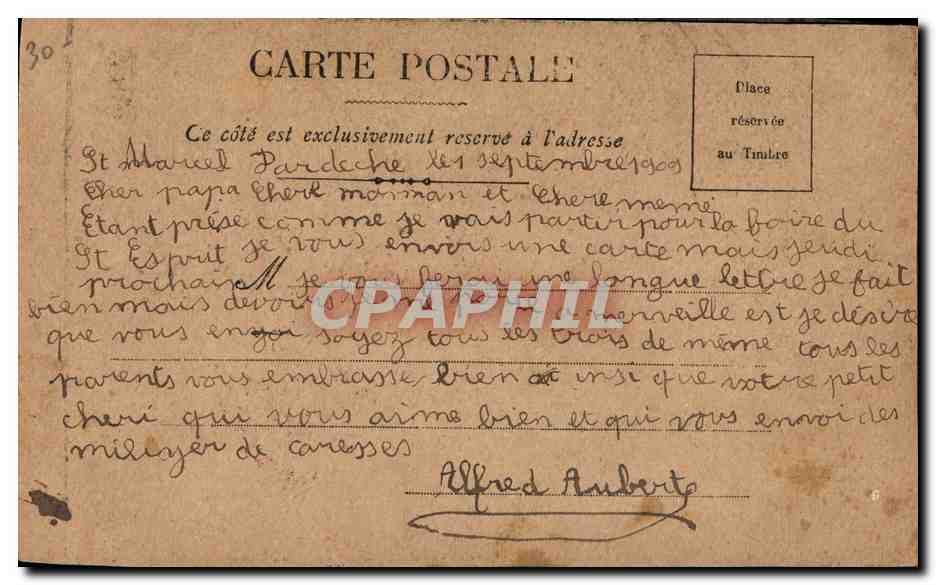 30
CARTE POSTALE
Ce côté est exclusivement reservé à l'adresse
Place
réservée
au Timbre
St Marcel Dardeche les septembre 1909
Cher papa Chere maman et Chere meme
Etant présé comme je vais partir pour la foire du
St Esprit je vous envois une carte mais jeudi
prochain M je vous ferai une longue lettre je fait
bien mais devoirs merveille est je désire
que vous soyez tous les trois de même tous les
parents vous embrasse bien insi que votre petit
cheri qui vous aime bien et qui vous envoi des
milyer de caresses
Alfred Aubert
CPAPHIL.com
6